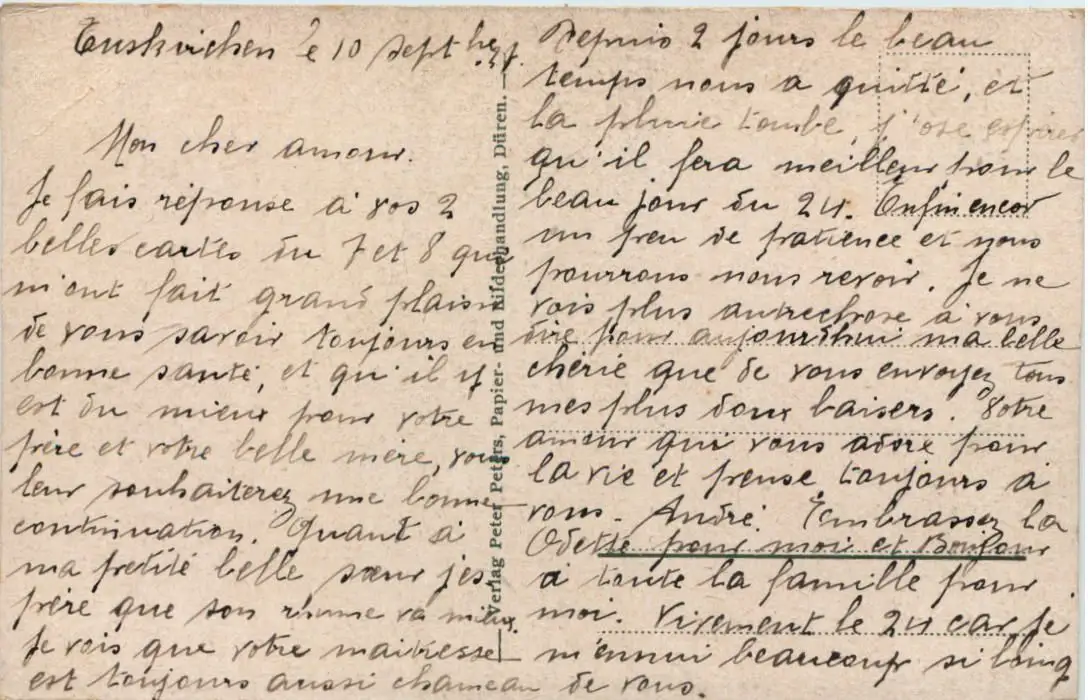 Euskirchen le 10 septbre
Mon cher amour.
Je fais réponse à vos 2
belles cartes du 7 et 8 qui
m'ont fait grand plaisir
de vous savoir toujours en
bonne santé, et qu'il y
est du mieux pour votre
frère et votre belle mère, vous
leur souhaiterez une bonne
continuation. Quant à
ma petite belle sœur j'es
père que son rhume va mieux.
Je vois que votre maitresse
est toujours aussi chameau de vous.
Verlag Peter Peters, Papier- und Bilderhandlung, Düren.
Depuis 2 jours le beau
temps nous a quitté, et
la pluie tombe, j'ose espérer
qu'il fera meilleur pour le
beau jour du 24. Enfin encor
un peu de patience et nous
pourrons nous revoir. Je ne
vois plus autrechose à vous
dire pour aujourdhui ma belle
chérie que de vous envoyez tous
mes plus doux baisers. Votre
amour qui vous adore pour
la vie et pense toujours à
vous. André. Embrassez la
Odette pour moi et Bonjour
à toute la famille pour
moi. Vivement le 24 car je
m'ennui beaucoup si loing